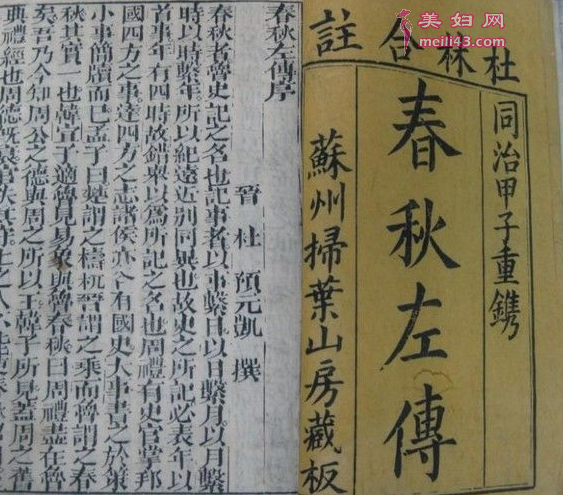 美妇网
meili43.com
杜林合註
同治甲子重鐫
春秋左傳
蘇州掃葉山房藏板
春秋左傳序
晉 杜 預元凱 撰
春秋者魯史記之名也記事者以事繫日以日繫月以月繫
時以時繫年所以紀遠近別同異也故史之所記必表年以
首事年有四時故錯舉以爲所記之名也周禮有史官掌邦
國四方之事達四方之志諸侯亦各有國史大事書之於策
小事簡牘而已孟子曰楚謂之檮杌晉謂之乘而魯謂之春
秋其實一也韓宣子適魯見易象與魯春秋曰周禮盡在魯
矣吾乃今知周公之德與周之所以王韓子所見蓋周之舊
典禮經也周德既衰官失其守上之人不能